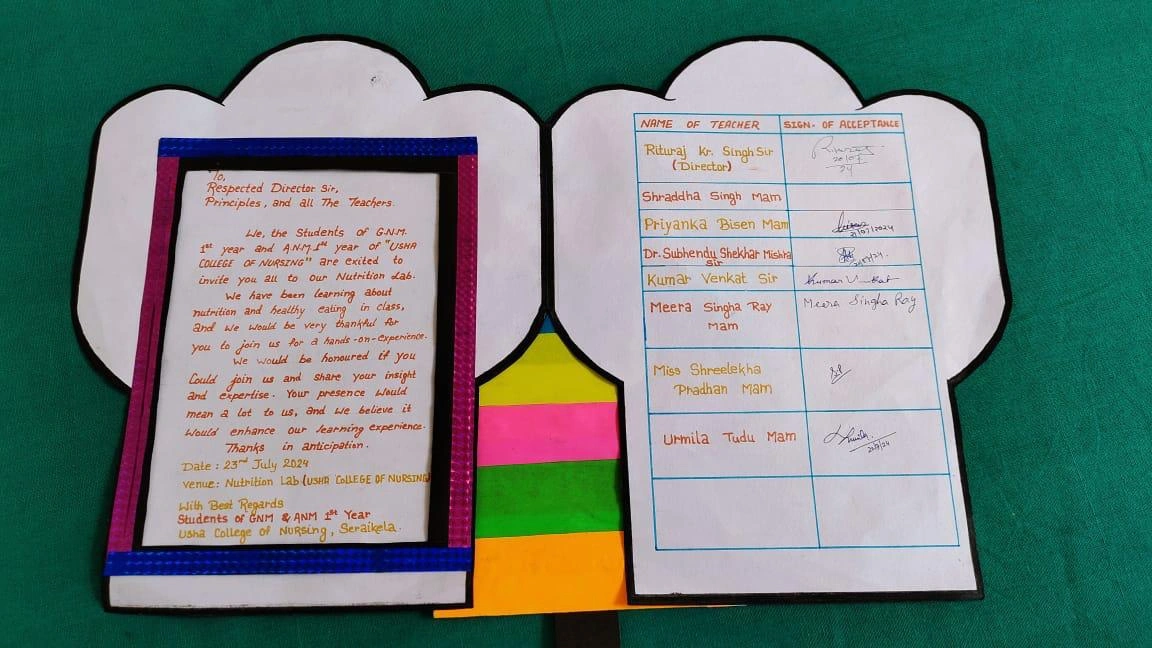 To,
Respected Director Sir,
Principles, and all The Teachers.
We, the Students of G.N.M.
1st year and A.N.M. 1st year of "USHA
COLLEGE OF NURSING" are exited to
invite you all to our Nutrition Lab.
We have been learning about
nutrition and healthy eating in class,
and we would be very thankful for
you to join us for a hands-on-experience.
We would be honoured if you
Could join us and share your insight
and expertise. Your presence would
mean a lot to us, and we believe it
would enhance our learning experience.
Thanks in anticipation.
Date : 23rd July 2024
venue: Nutrition Lab (USHA COLLEGE OF NURSING)
With Best Regards
Students of GNM & ANM 1st Year
Usha College of Nursing, Seraikela.
NAME OF TEACHER SIGN. OF ACCEPTANCE
Rituraj Kr. Singh Sir
(Director)
20/07
24
Shraddha Singh Mam
Priyanka Bisen Mam
21/07/2024
Dr. Subhendu Shekhar Mishra
Sir
Kumar Venkat Sir Kumar Venkat
Meera Singha Ray Meera Singha Ray
Mam
Miss Shreelekha
Pradhan Mam
Urmila Tudu Mam